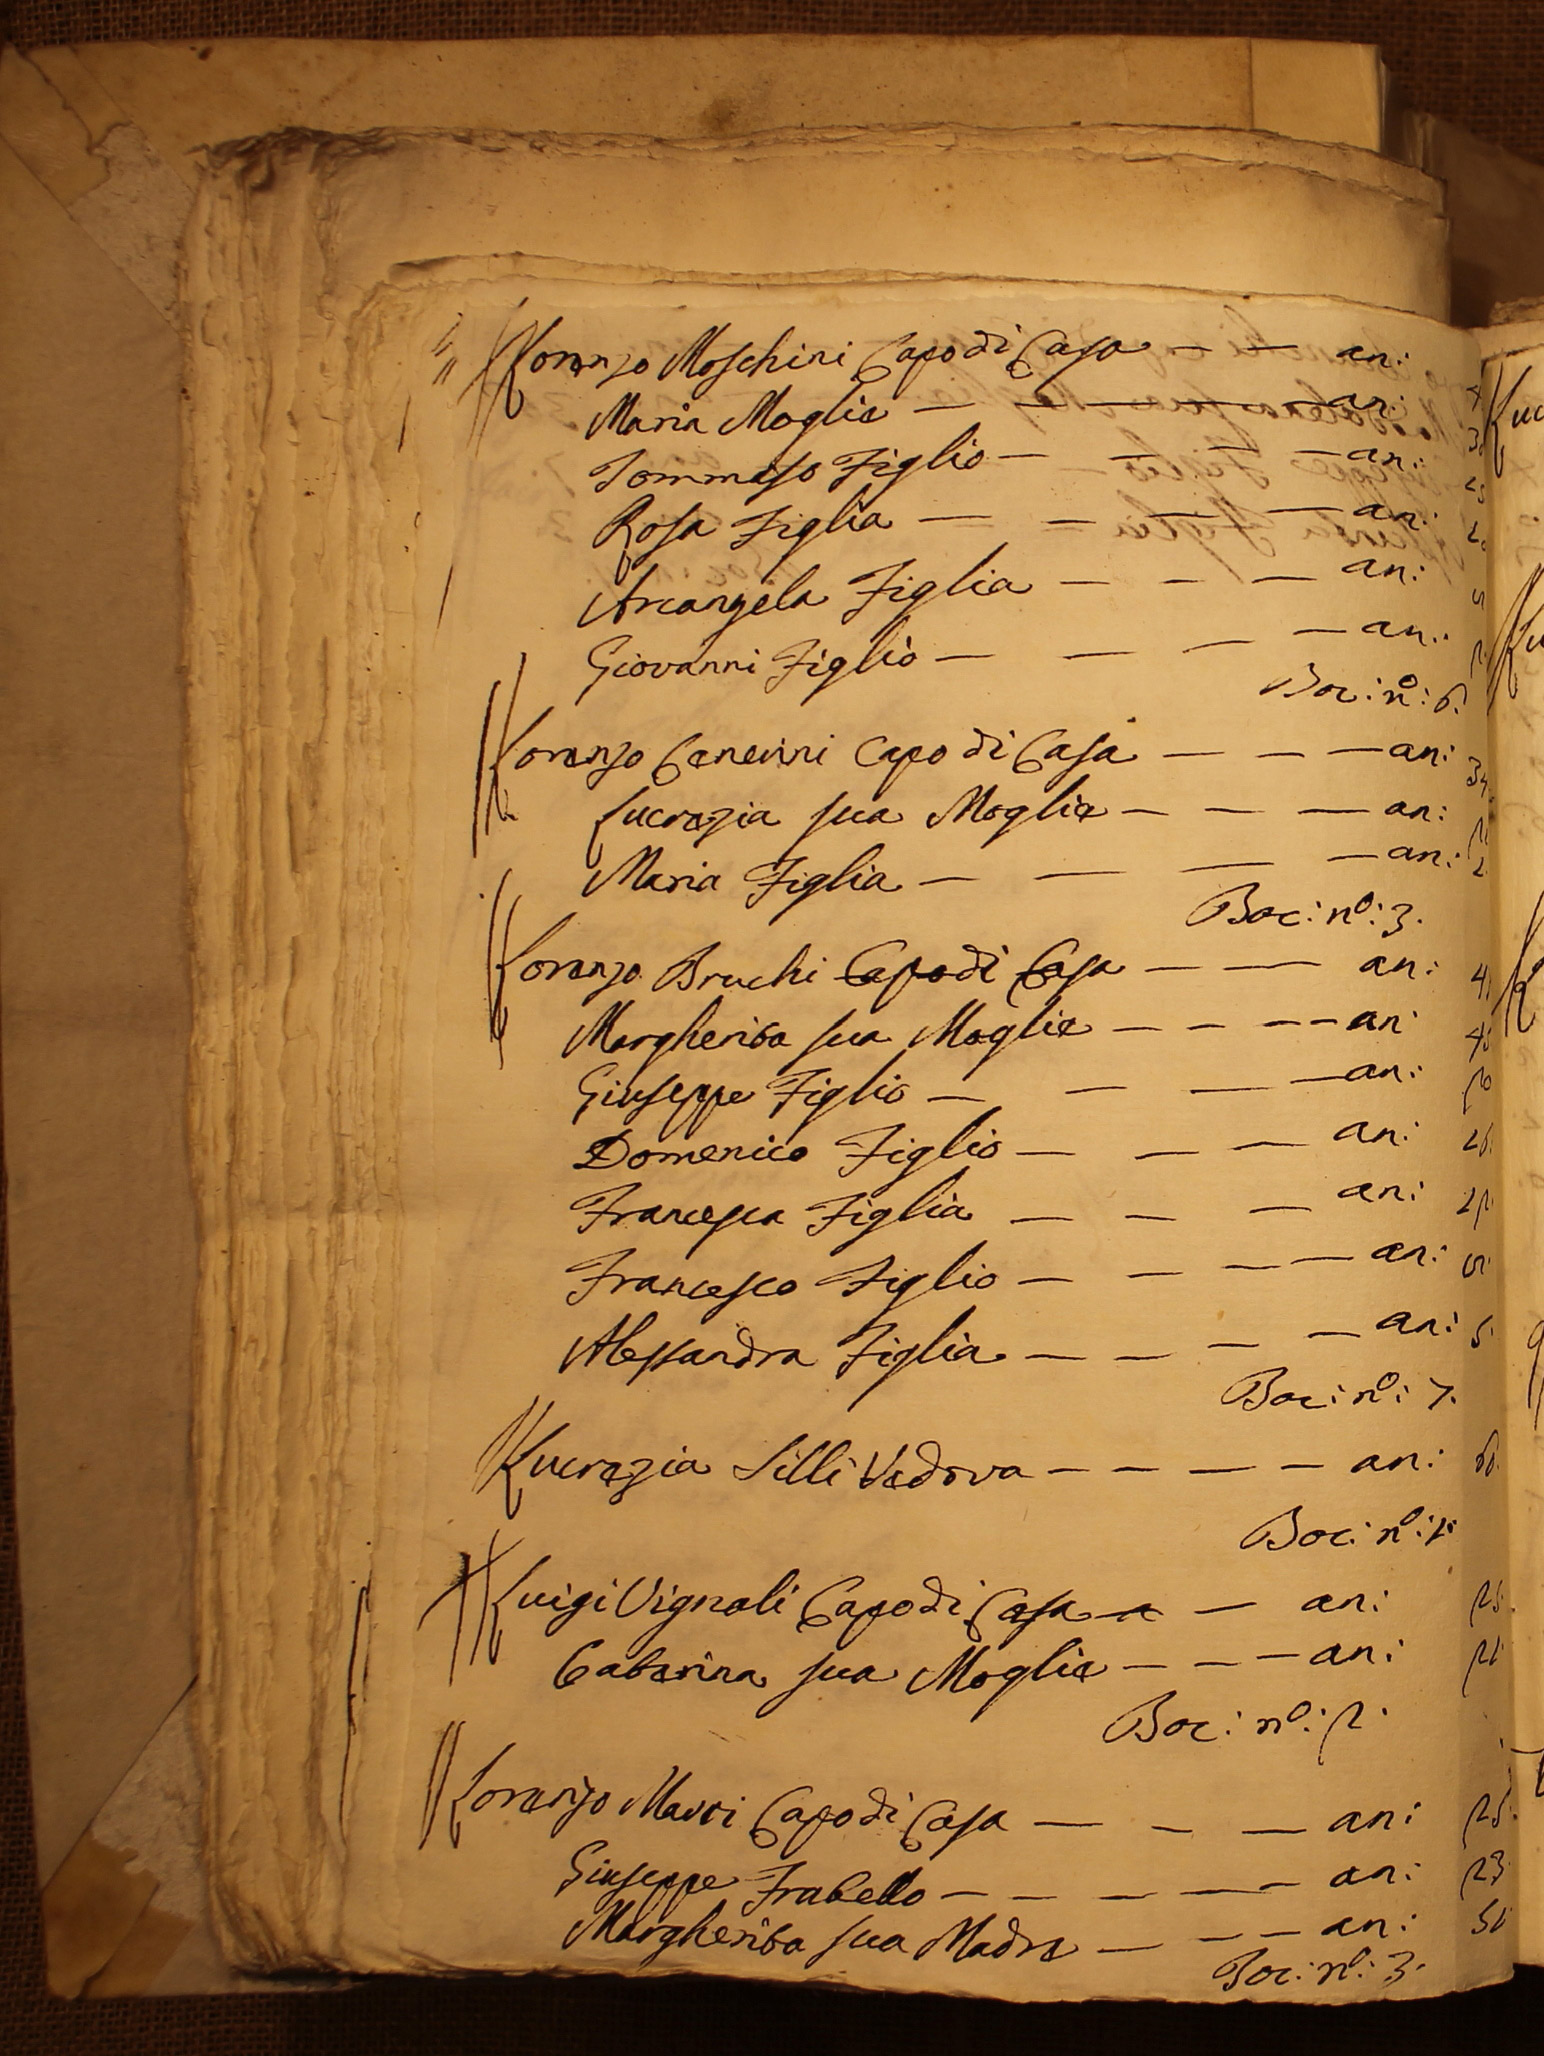 Lorenzo Moschini Capo di Casa — — an:
Maria Moglie — — — an:
Tommaso Figlio — — — an:
Rosa Figlia — — — an:
Arcangela Figlia — — — an:
Giovanni Figlio — — — — an:
Boc: nº: 6.
Lorenzo Capo di Casa — — — an: 34.
Lucrezia sua Moglie — — — an:
Maria Figlia — — — — an: 2.
Boc: nº: 3.
Lorenzo Bruchi Capo di Casa — — an:
Margherita sua Moglie — — — — an:
Giuseppe Figlio — — — — an:
Domenico Figlio — — — an: 26.
Francesca Figlia — — — an:
Francesco Figlio — — — — an:
Alessandra Figlia — — — — an: 5.
Boc: nº: 7.
Lucrezia Lilli Vedova — — — — — an: 60.
Boc: nº: 1:
Luigi Vignali Capo di Casa — — an: 25.
Catarina sua Moglie — — — an: 21
Boc: nº: 2.
Lorenzo Capo di Casa — — — an: 25.
Giuseppe Fratello — — — — — an: 23.
Margherita sua Madre — — — an:
Boc: nº: 3.